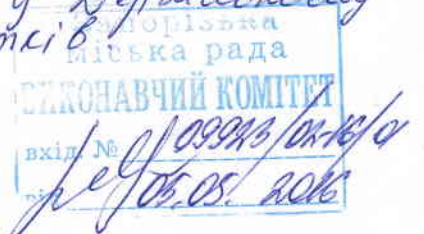 Запорізька
Міська рада
ВИКОНАВЧИЙ КОМІТЕТ
вхід. № 09923/02-16/01
від 05.05. 2016